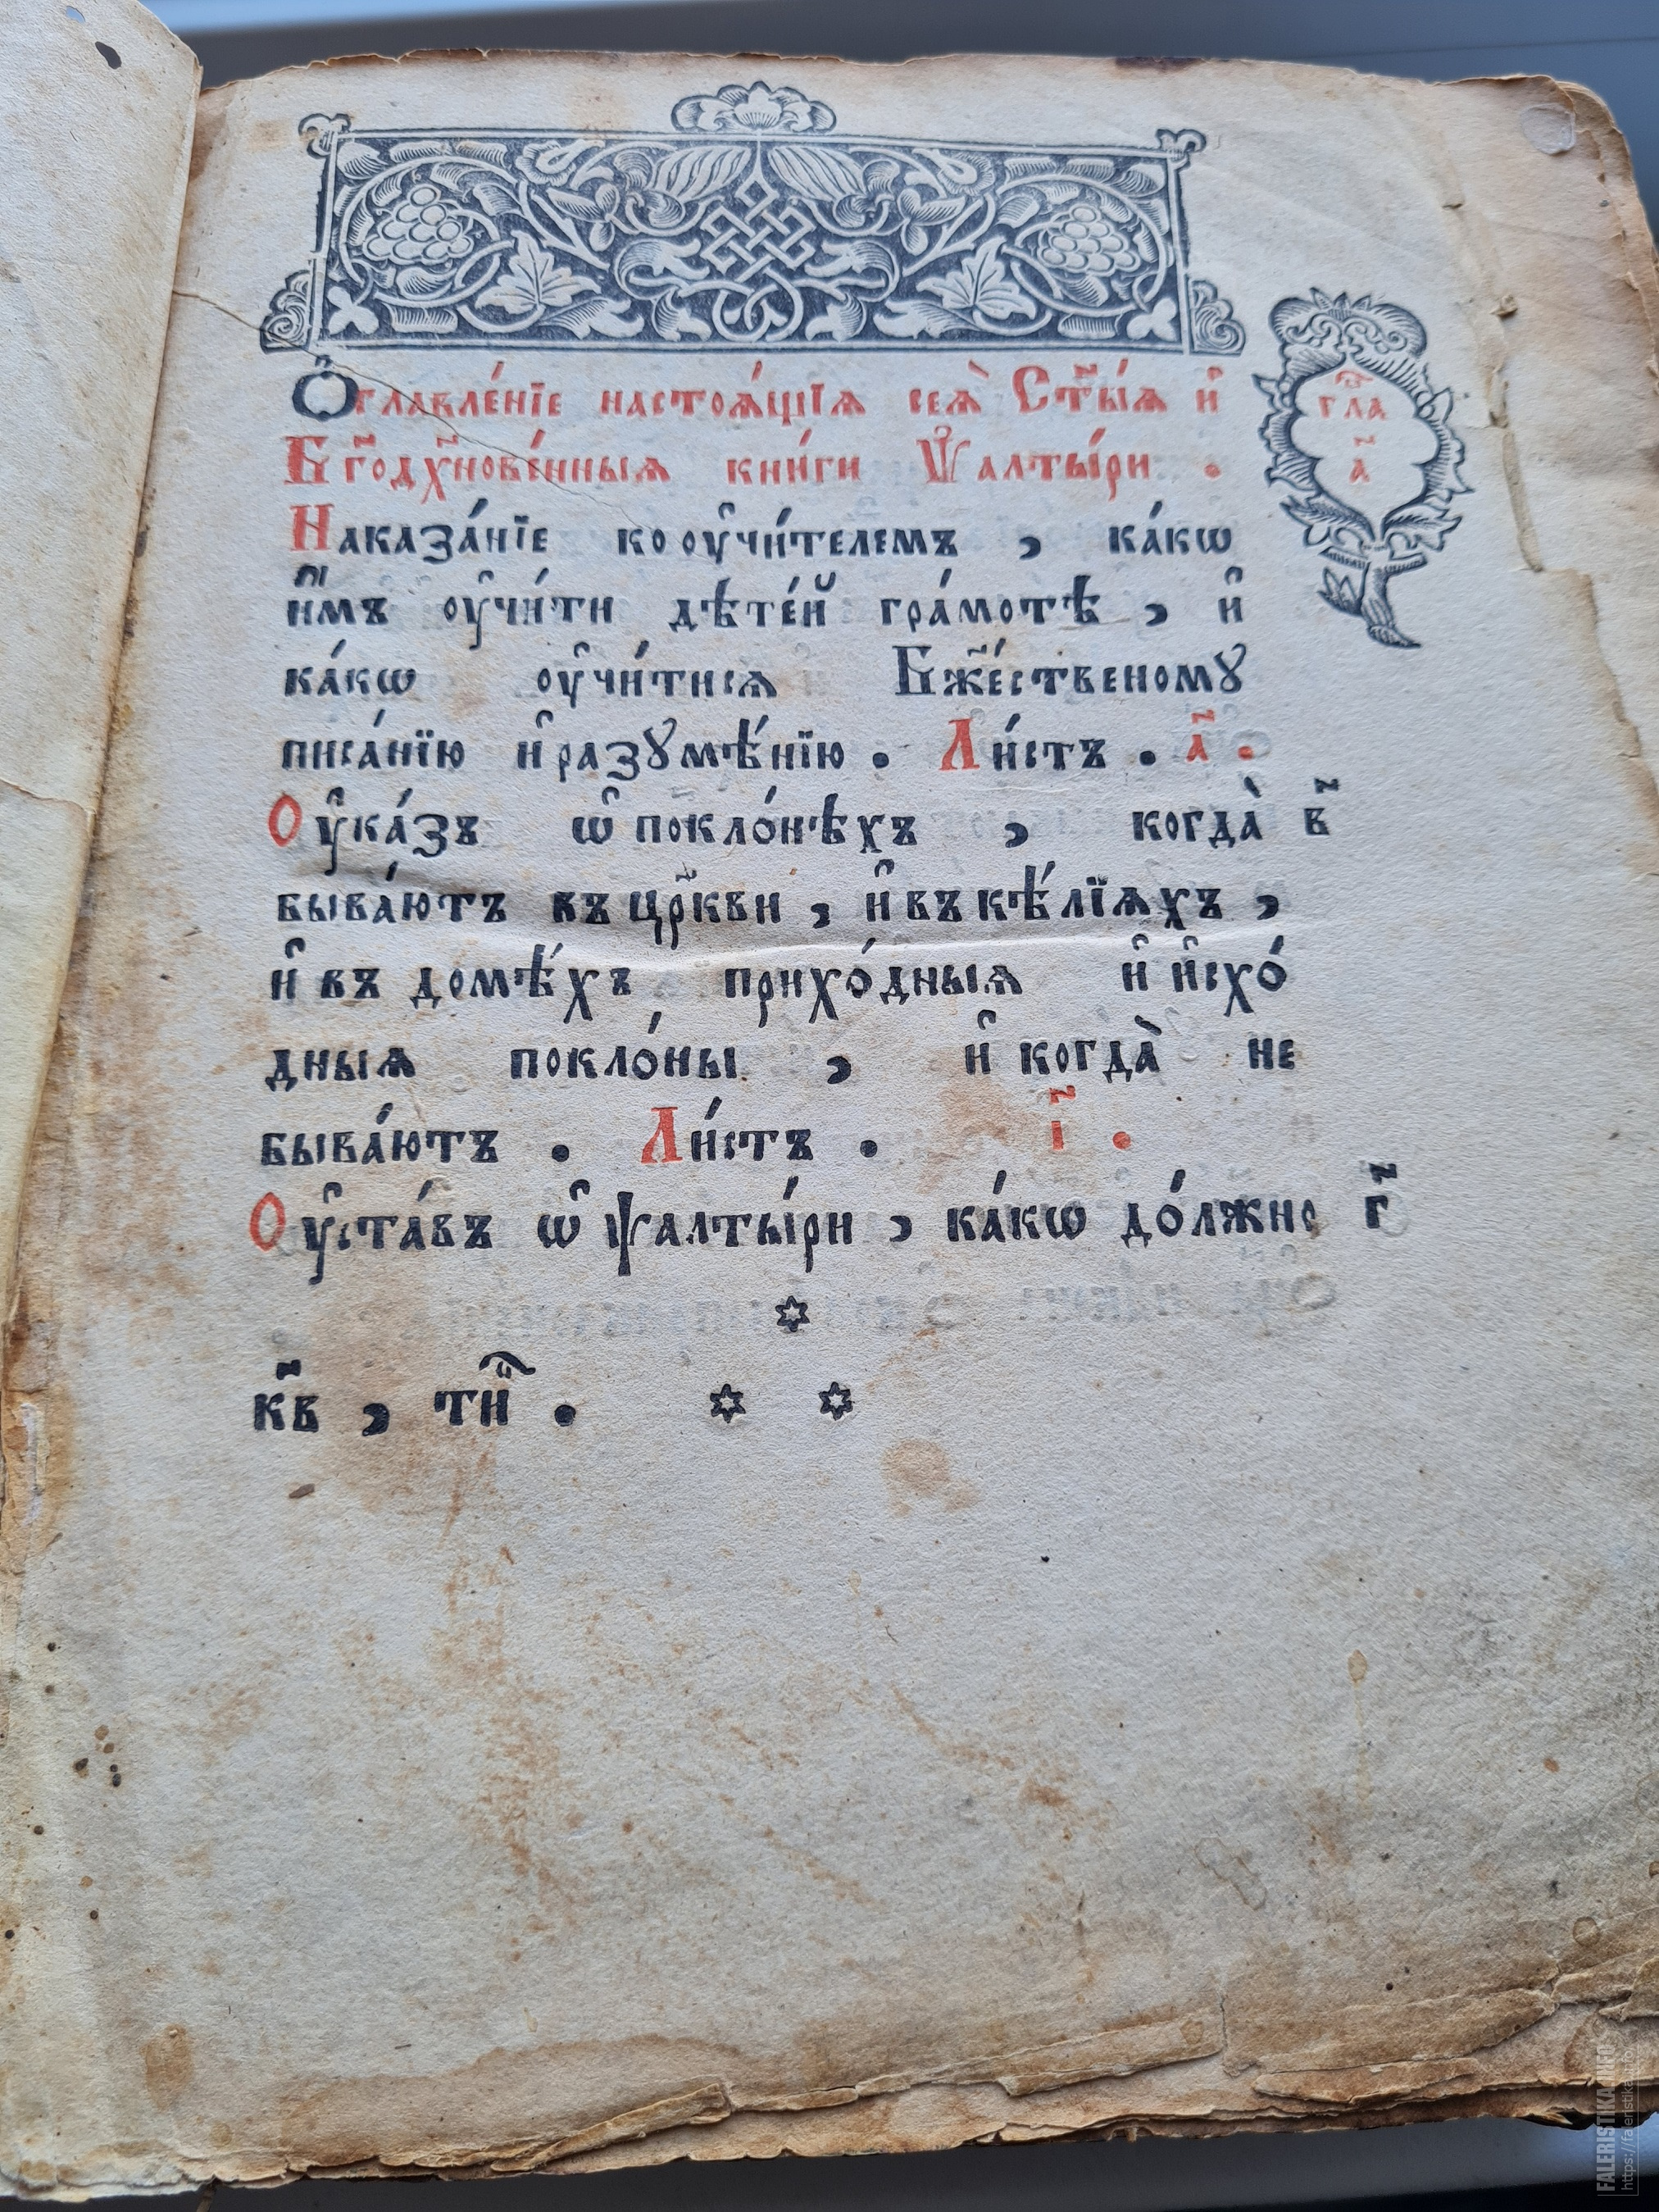 Ѻ҆главле́нїе настоѧ́щїѧ сеѧ̀ Ст҃ы́ѧ и҆
Бг҃одх҃нове́нныѧ кни́ги Ѱалты́ри .
гла
а҃
Наказа́нїе ко оу҆чи́телемъ , ка́кѡ
и҆̀мъ оу҆чи́ти дѣте́й гра́мотѣ , и҆
ка́кѡ оу҆чи́тисѧ Бж҃е́ственомꙋ
писа́нїю и҆ разꙋмѣ́нїю . Ли́стъ . а҃ .
Оу҆ка́зъ ѡ҆ покло́нѣхъ , когда̀ в҃
быва́ютъ въ цр҃кви , и҆ въ кѣ́лїѧхъ ,
и҆ въ домѣ́хъ прихо́дныѧ и҆ и҆схо́
дныѧ покло́ны , и҆ когда̀ не
быва́ютъ . Ли́стъ . і҃ .
Оу҆ста́въ ѡ҆ ѱалты́ри , ка́кѡ до́лжно г҃
к҃в , тн҃і .
FALERISTIKA.INFO
https://faleristika.info